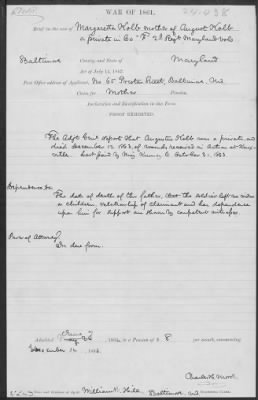 WAR OF 1861.
Brief in the case of Margaretta Kolb mother of August Kolb
a private in Co "F" 2d Regt Maryland Vols.
Baltimore County, and State of Maryland
Act of July 14, 1862.
Post Office address of Applicant, No 65 Preston Street, Baltimore, Md
Claim for Mother Pension.
Declaration and Identification in Due Form.
PROOF EXHIBITED.
The Adjt Genl reports that Augustus Kolb was a private and
died December 12, 1863, of wounds received in action at Knox-
ville last paid by Maj to October 31, 1863
Dependence &c
The date of death of the father, that the soldier left no widow
or children, relationship of claimant and her dependence
upon him for support are shown by competent witnesses.
Power of Attorney
In due form.
Admitted June 7 1864, to a Pension of $ 8 per month, commencing
December 12 1863.
William H. Hill, Baltimore, Md